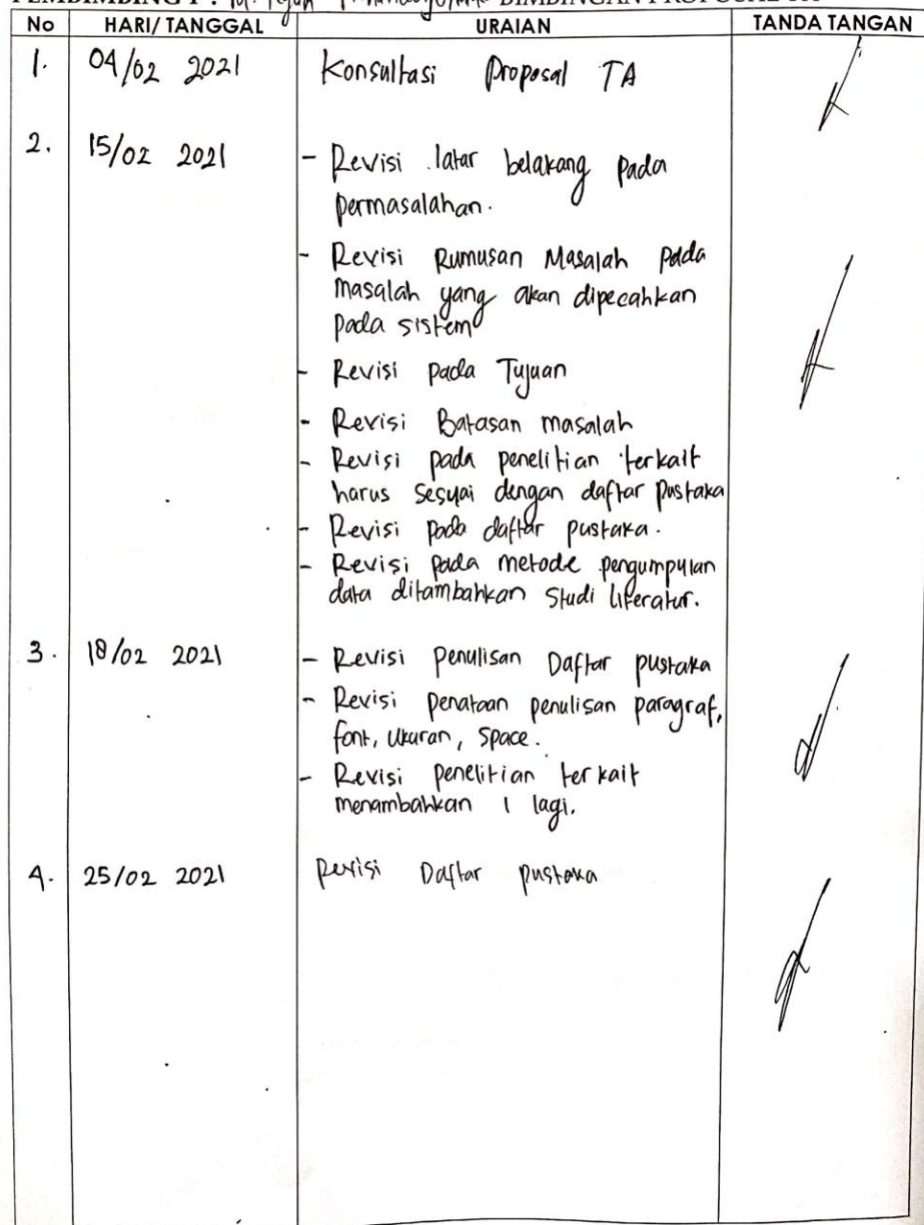 BIMBINGAN PROPOSAL TA
No HARI/ TANGGAL URAIAN TANDA TANGAN
1. 04/02 2021 Konsultasi Proposal TA
2. 15/02 2021 - Revisi latar belakang pada
permasalahan.
- Revisi Rumusan Masalah pada
masalah yang akan dipecahkan
pada sistem
- Revisi pada Tujuan
- Revisi Batasan masalah
- Revisi pada penelitian terkait
harus sesuai dengan daftar pustaka
- Revisi pada daftar pustaka.
- Revisi pada metode pengumpulan
data ditambahkan studi literatur.
3. 18/02 2021 - Revisi penulisan Daftar pustaka
- Revisi penataan penulisan paragraf,
font, ukuran, space.
- Revisi penelitian terkait
menambahkan 1 lagi.
4. 25/02 2021 Revisi Daftar pustaka